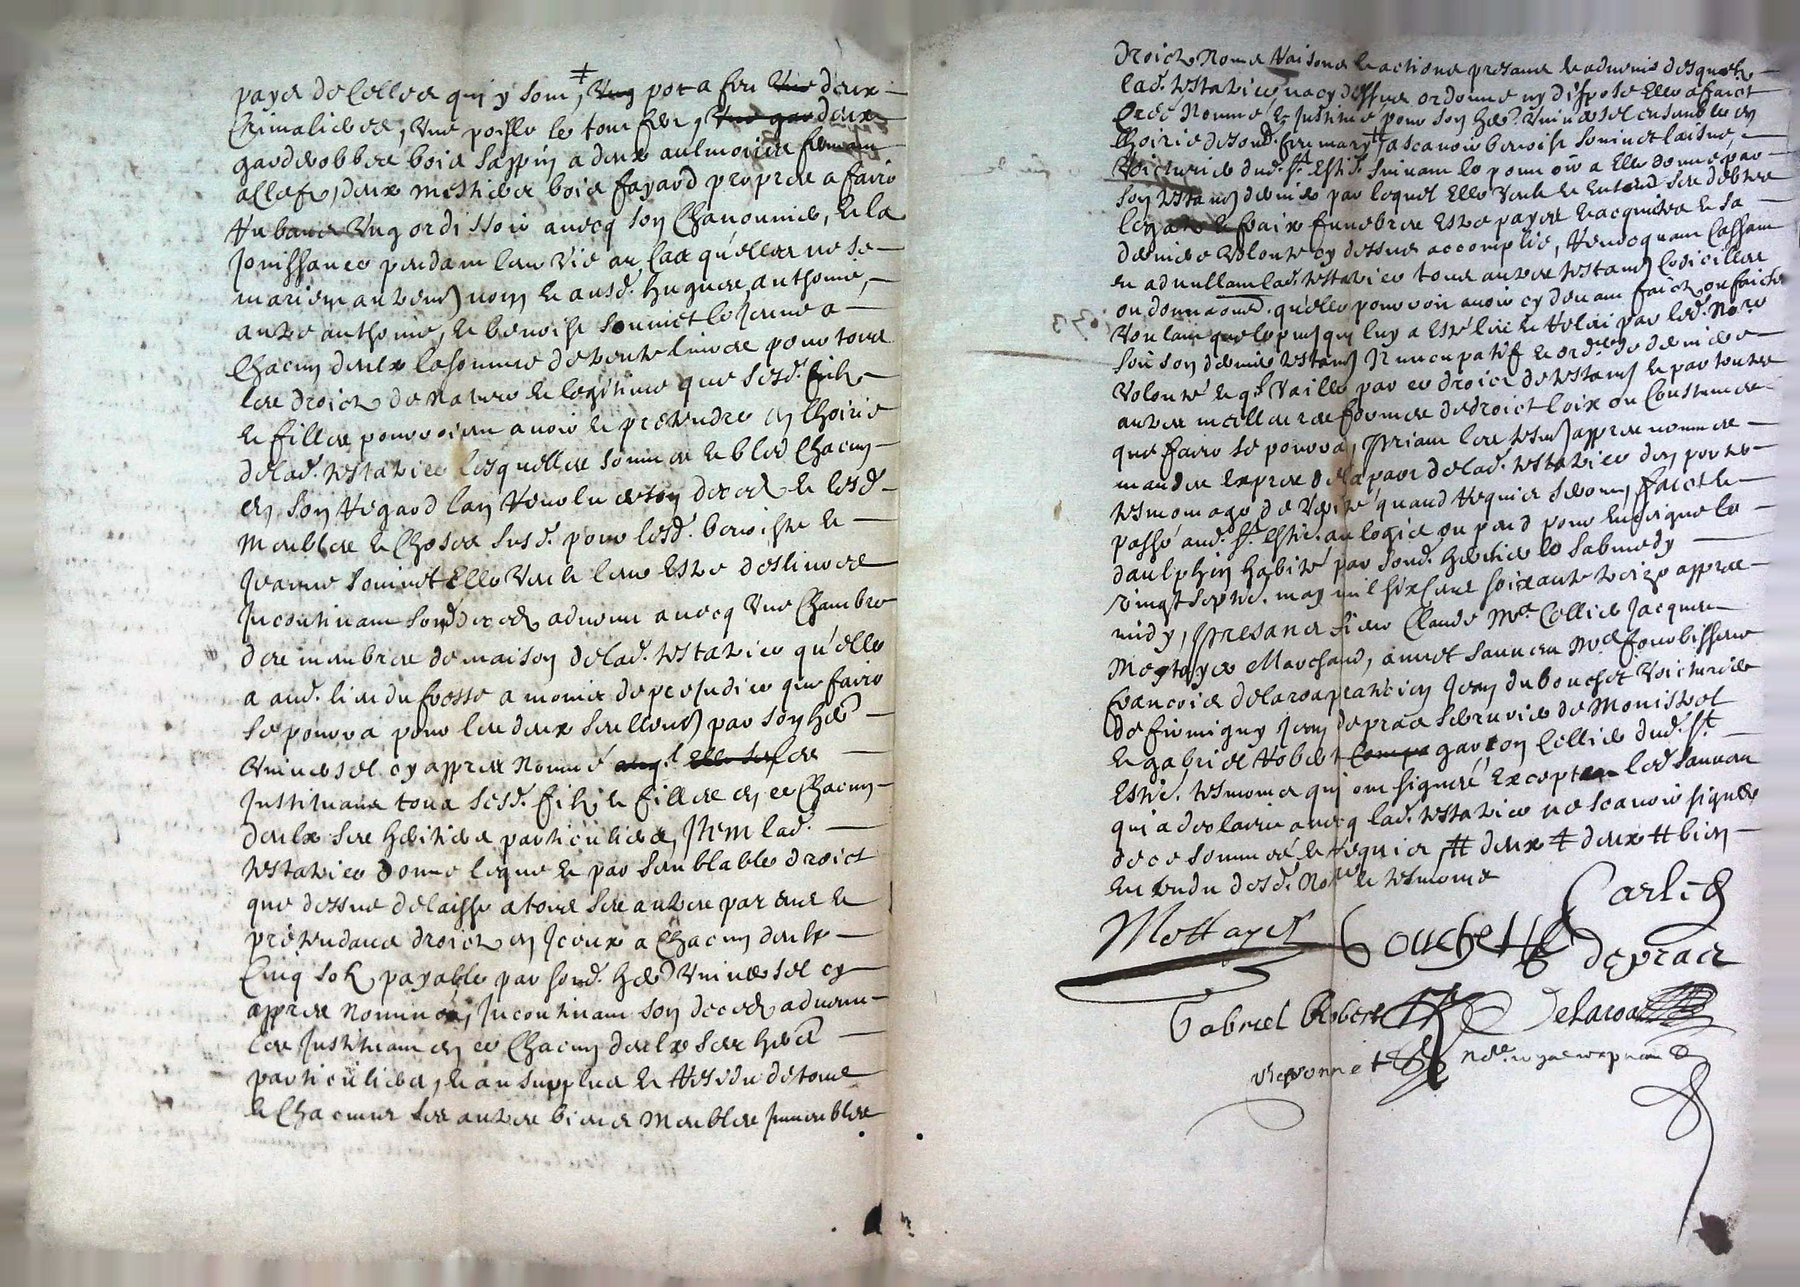 payer de celles qui y sont, ‡ Ung pot a feu Une deux
Crimalieres, Une poille le tout fer, Une gar deux
garderobbes bois sappin a deux aulmoires fermant
a clefz, deux mestiers bois fayard propres a faire
Rubans Ung ordissoir avecq son Chanonnier, et la
jouissance pendant leur vie au cas qu'elles ne se
marient autrement non et ausd. hugues, anthome,
autre anthome, et benoist Sominet le Jeune a
Chacun deulx la somme de trente livres pour tous
les droictz de nature et legitime que sesd. filz
et filles pourroient avoir et pretendre en l'hoirie
de lad. testatrice lesquelles sommes et bled Chacun
en son regard l'an revolu de son deces et lesd.
meubles et Choses susd. pour lesd. benoiste et
Jeanne Sominet Elle Veult leur Estre deslivrees
Incontinant sond deces advenu avecq Une Chambre
des membres de maison de lad. testatrice qu'elle
a aud. lieu du fosse a moings de prejudice que faire
se pourra pour les deux seullement par son her
Universel cy appres nommé Elle les
Instituant tous sesd. filz et filles en ce Chacun
deulx ses heritiers particuliers, Item lad.
testatrice donne legue et par semblable droict
que dessus delaisse a tous ses autres parens et
pretendans droictz en Iceux a Chacun deulx
Cinq solz payable par sond. her Universel cy
appres nommé, Incontinant son deces advenu
les Instituant en ce Chacun deulx ses her
particuliers, et au surplus et Residu de tous
et Chacuns ses autres biens meubles Immeubles
droictz noms Raisons et actions presans et advenir desquelz
lad. testatrice n'a cy dessus ordonné ny disposé Elle a faict
Creé Nommé et Institué pour son her. Universel ensemble en
l'hoirie de sond. feu mary ‡ a scavoir benoist Sominet laisne
Voicturier dud. St. Esti. suivant le pouvoir a Elle donné par
son testament dernier par lequel Elle Veult et Entend ses debtes
legatz et fraix funebres Estre payes et acquittes et sa
derniere Volonte cy dessus accomplie, Revocquant Cassant
et adnullant lad. testatrice tous autres testamt Codicilles
ou donnaons. qu'elle pourroit avoir cy devant faictz ou faictes
Voulant que le pnt qui luy a Esté leu et Releu par led. Nore
soit son dernier testamt Nuncupatif et ordre. de derniere
Volonté et qu'il Vaille par ce droict de testamt et par toutes
autres meilleures formes de droict loix ou Coustumes
que faire se pourra, Priant les tesmt appres nommes
mandes expres de la part de lad. testatrice d'en porter
tesmoniage de Verité quand Requis seront, faict et
passé aud. St. Esti. au logis ou pend pour Enseigne le
daulphin habité par sond. heritier le Sabmedy
vingt septie. may mil six cens soixante treize appres
midy, Presans sieur Claude Mre. Cellier Jacques
Mottayer Marchand, annet Sauvan Mre fourbisseur
francois delaroa praticien Jean dubouchet Voicturier
de firmigny Jean depras serrurier de Monistrol
et gabriel Robert garcon Cellier dud. St.
Estie. tesmoins qui ont signés, Excepte led Sauvan
qui a declairé avecq lad. testatrice ne scavoir signer
de ce sommes et requis, # deux ‡ deux # bien
entendu desd. Nore et tesmoins
Carlier
Mottayer
Bouchet
depras
Gabriel Robert
Delaroa